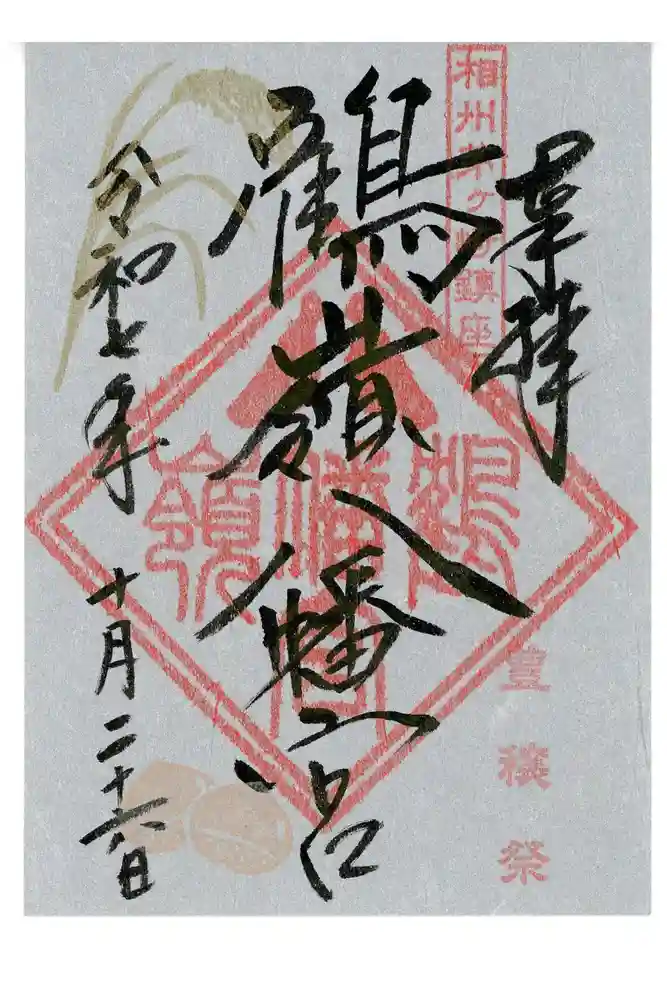 奉拝
相州茅ヶ崎鎮座
豊穣祭
鶴嶺八幡宮
鶴嶺八幡宮
令和七年十月二十六日